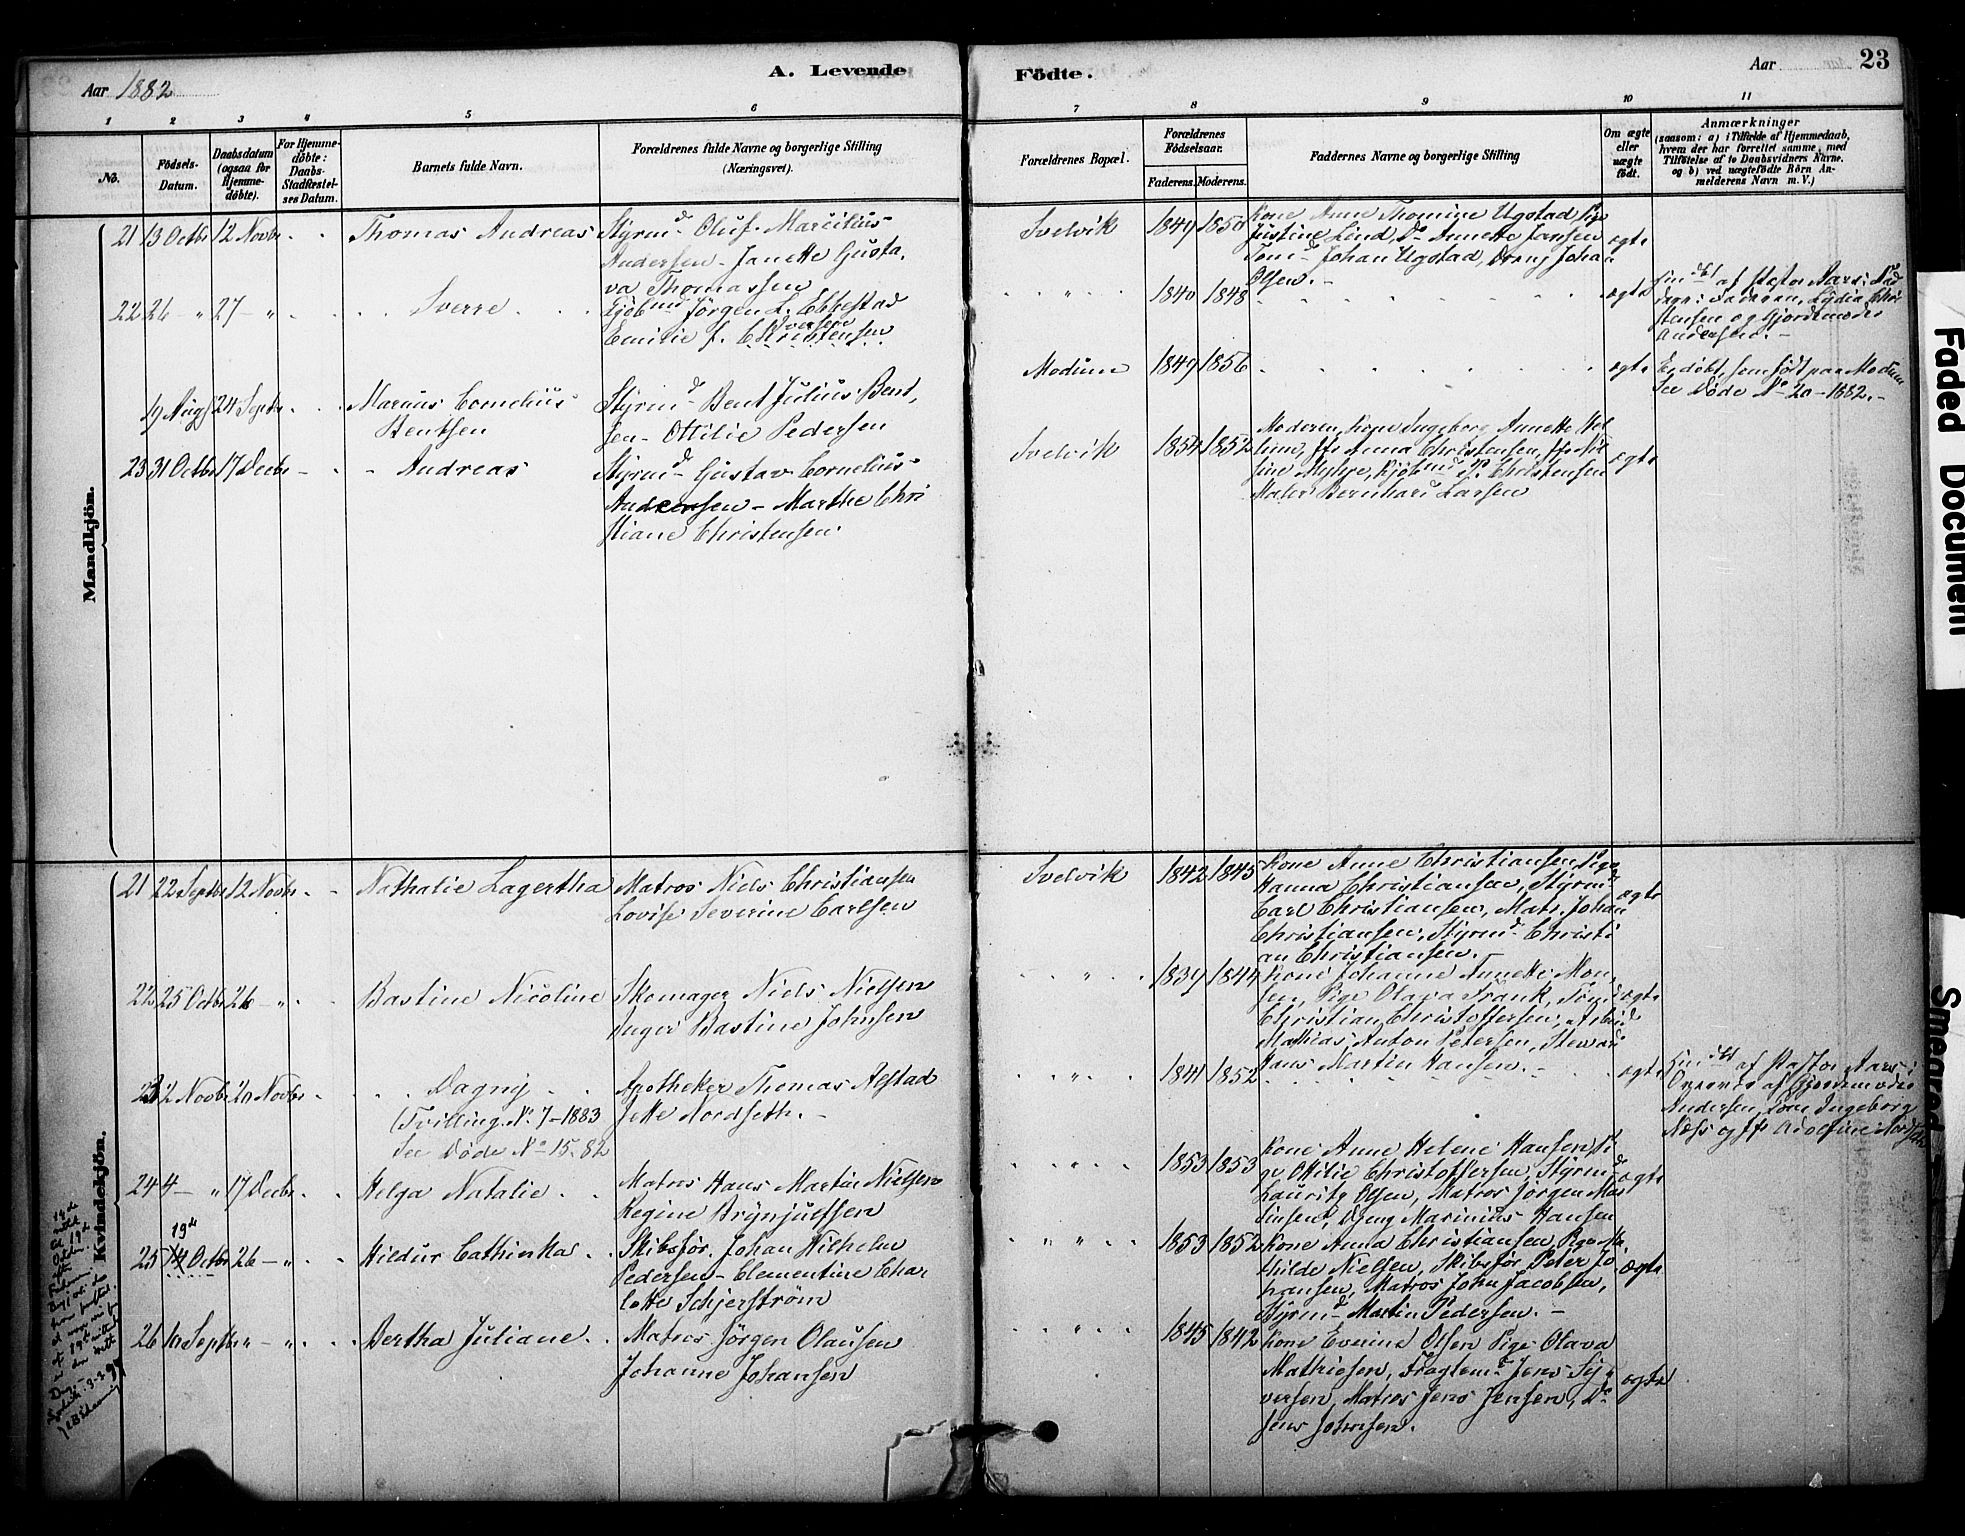 Aar 1882
A. Levende
Födte.
Aar
23
1 2 3 4 5 6 7 8 9 10 11
No.
Födsels-
Datum.
Daabsdatum
(ogsaa for
Hjemme-
døbte).
For Hjemme-
døbte:
Daabs-
Stadfæstel-
ses Datum.
Barnets fulde Navn.
Forældrenes fulde Navne og borgerlige Stilling
(Næringsvei).
Forældrenes Bopæl.
Forældrenes
Födselsaar.
Faderens. Moderens.
Faddernes Navne og borgerlige Stilling
Om ægte
eller
uægte
födt.
Anmærkninger
(saasom: a) i Tilfælde af Hjemmedaab,
hvem der har forrettet samme, med
Tilføielse af to Daabsvidners Navne,
og b) ved uægtefödte Börn An-
melderens Navn m. V.)
Mandkjön.
21 13 Octbr 12 Novbr Thomas Andreas
Styrmd Oluf Marcilius
Andersen - Janette Gusta,
va Thomassen
Svelvik 1849 1850
Kone Anne Thomine Ugstad Pige
Justine Lind, Do Annette Jansen
Tømd Johan Ugstad, Dreng Johan
Olsen. -
ægte
22 26 " 27 - " Sverre
Kjøbmd Jörgen L. Ebbestad
Emilie f. Christensen
Iversen
" 1840 1848 ægte
af Pastor Aars:
Faderen, Lydia Chri
stensen og Gjordemoder
Andersen. -
19 Aug 24 Septbr Marius Cornelius
Bentsen
Styrmd Bent Julius Bent,
sen - Ottilie Pedersen
Modum 1849 1856 ægte
Er døbt, som født paa Modum
See Døde No 20-1882. -
23 31 Octbr 17 Decbr Andreas
Styrmd Gustav Cornelius
Andersen - Marthe Chri
stiane Christensen
Svelvik 1854 1852
Moderen, Kone Ingeborg Annette
Anna Christensen,
Myhre, Kjøbmd P. Christensen
Maler Bernhard Larsen
ægte
Kvindekjön.
21 22 Septbr 12 Novbr Nathalie Lagertha
Matros Niels Christiansen
Lovise Severine Carlsen
Svelvik 1842 1845
Kone Anne Christiansen, Pige
Hanna Christiansen, Styrmd
Carl Christiansen, Matr. Johan
Christiansen, Styrmd Christi
an Christiansen. -
ægte
22 25 Octbr 26 - " Bastine Nicoline
Skomager Niels Nielsen
Inger Bastine Johnsen
" 1839 1844
Kone Johanne Annette Mon,
sen, Pige Olava Frank, Tømd
Christian Christoffersen, Arbeid
Mathias Anton Petersen, Steward
Hans Martin Hansen. -
ægte
23 12 Novbr 20 Novbr Dagny
(Tvilling. No 7-1883
See Døde No 15-82
Apotheker Thomas Aestad
Jette Nordseth. -
" 1841 1852 ægte
af Pastor Aars i
af Gjordemoder
Andersen, Kone Ingeborg
Næss og
24 4 - " 17 Decbr Helga Natalie
Matros Hans Martin Nielsen
Regine Brynjulfsen
" 1853 1853
Kone Anne Helene Hansen Pi
ge Ottilie Christoffersen, Styrmd
Lauritz Olsen, Matros Jörgen Mar
tinsen, Dreng Marinius Hansen
ægte
19de
25 14 Octbr 26 - " Hildur Cathinka
Skibsfør. Johan Wilhelm
Pedersen - Clementine Char
lotte Schjerström
" 1853 1852
Kone Anna Christiansen, Pige Ma
thilde Nielsen, Skibsfør Peter Jo
hansen, Matros John Jacobsen,
Styrmd Martin Pedersen. -
ægte
26 10 Septbr " - " Bertha Juliane
Matros Jörgen Olausen
Johanne Johansen
" 1845 1842
Kone Everine Olsen Pige Olava
Mathiesen, Fragtemd Jens Sy,
versen, Matros Jens Jensen, Do
Jens Johnsen.
ægte
Faded Document
Smeared